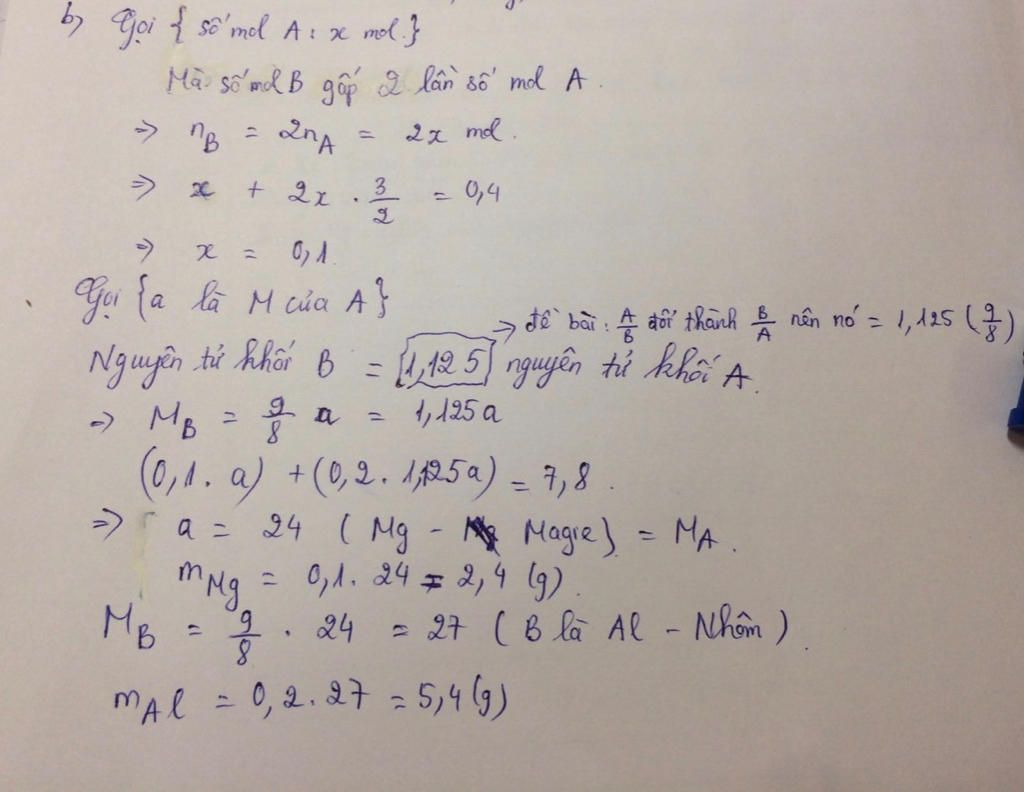 b) Gọi { số mol A : x mol.}
Mà số mol B gấp 2 lần số mol A.
=> n_B = 2n_A = 2x mol.
=> x + 2x . 3/2 = 0,4
=> x = 0,1.
Gọi {a là M của A}
→ đề bài : A/B đổi thành B/A nên nó = 1,125 (9/8)
Nguyên tử khối B = [1,125] nguyên tử khối A.
=> M_B = 9/8 a = 1,125a
(0,1. a) + (0,2. 1,125a) = 7,8.
=> a = 24 (Mg - Magie) = M_A.
m_Mg = 0,1. 24 = 2,4 (g).
M_B = 9/8 . 24 = 27 (B là Al - Nhôm).
m_Al = 0,2.27 = 5,4(g)